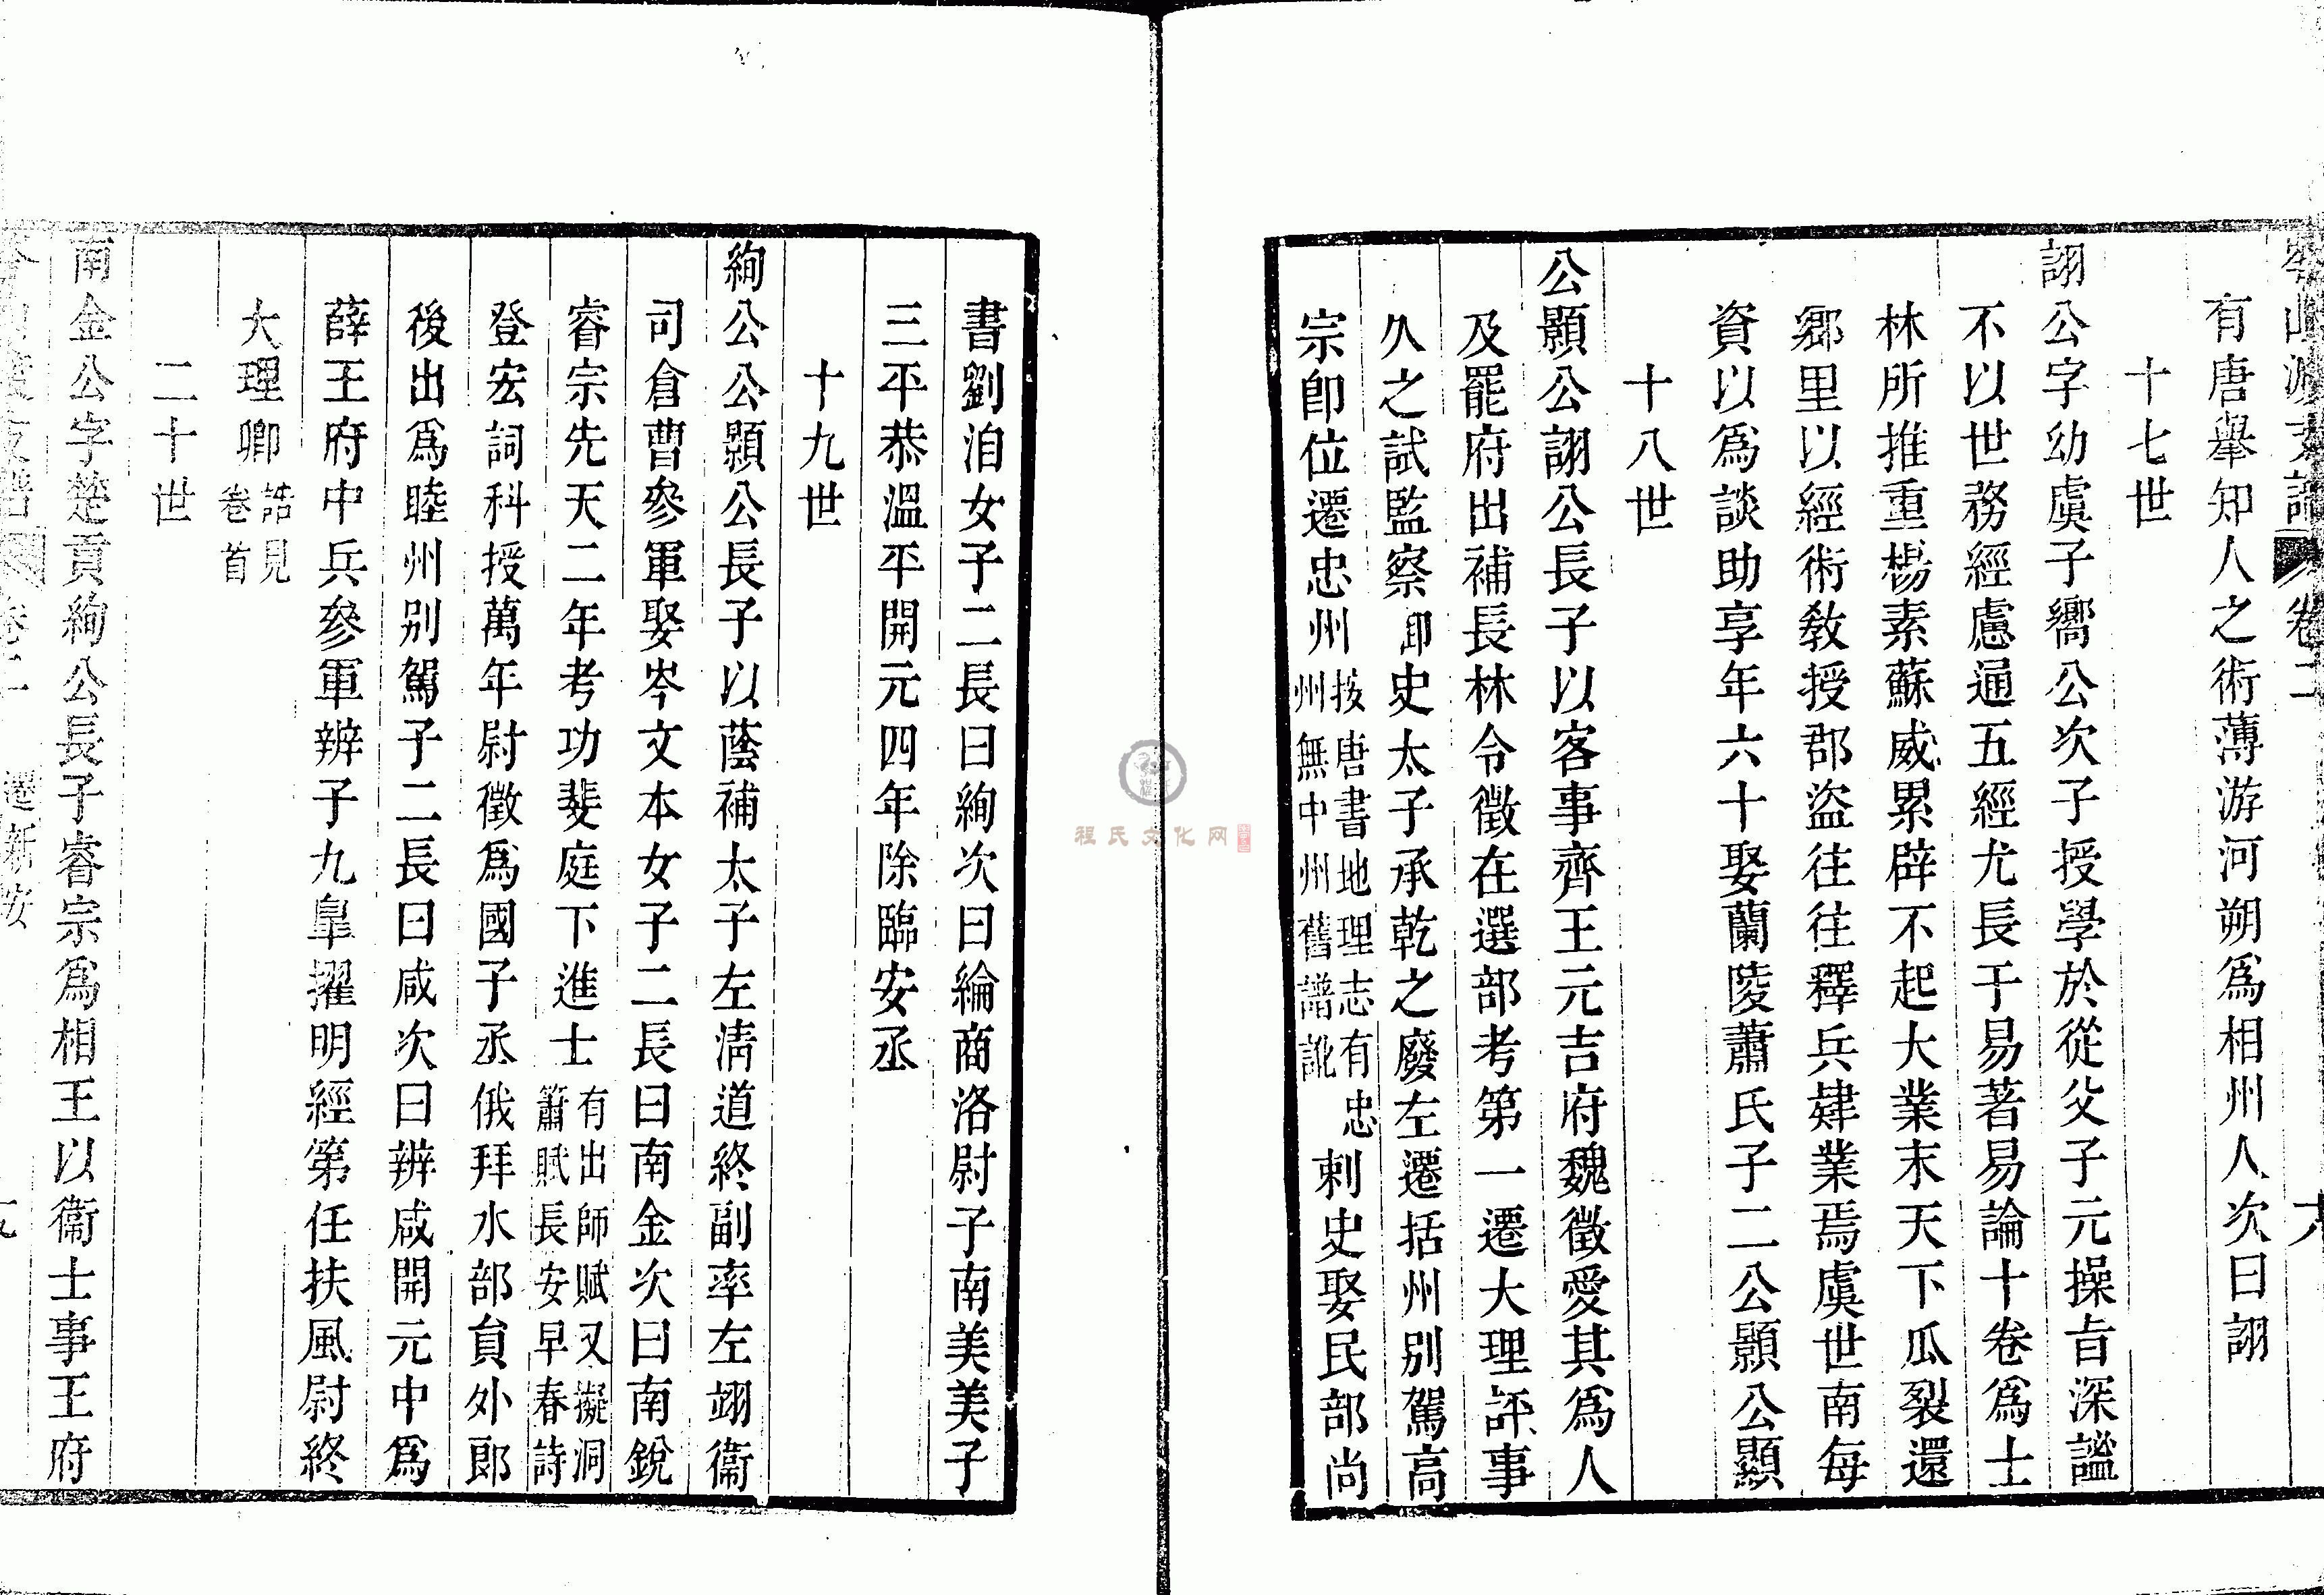 有唐舉知人之術薄游河朔爲相州人次曰詡
十七世
詡公字幼虞子嚮公次子授學於從父子元操旨深謐
不以世務經慮通五經尤長于易著易論十卷爲士
林所推重楊素蘇威累辟不起大業末天下瓜裂還
鄉里以經術教授郡盜往往釋兵肄業焉虞世南每
資以爲談助享年六十娶蘭陵蕭氏子二公顥公顯
十八世
公顥公詡公長子以客事齊王元吉府魏徵愛其爲人
及罷府出補長林令徵在選部考第一遷大理評事
久之試監察御史太子承乾之廢左遷括州別駕高
宗卽位遷忠州按唐書地理志有忠州無中州舊譜訛刺史娶民部尚
書劉洎女子二長曰絢次曰綸商洛尉子南美美子
三平恭溫平開元四年除臨安丞
十九世
絢公公顥公長子以蔭補太子左清道終副率左翊衞
司倉曹參軍娶岑文本女子二長曰南金次曰南銳
睿宗先天二年考功裴庭下進士有出師賦又擬洞簫賦長安早春詩
登宏詞科授萬年尉徵爲國子丞俄拜水部員外郎
後出爲睦州別駕子二長曰咸次曰辨咸開元中爲
薛王府中兵參軍辨子九皐擢明經第任扶風尉終
大理卿誥見卷首
二十世
南金公字楚貢絢公長子睿宗爲相王以衞士事王府
卷二 遷新安
程氏文化网